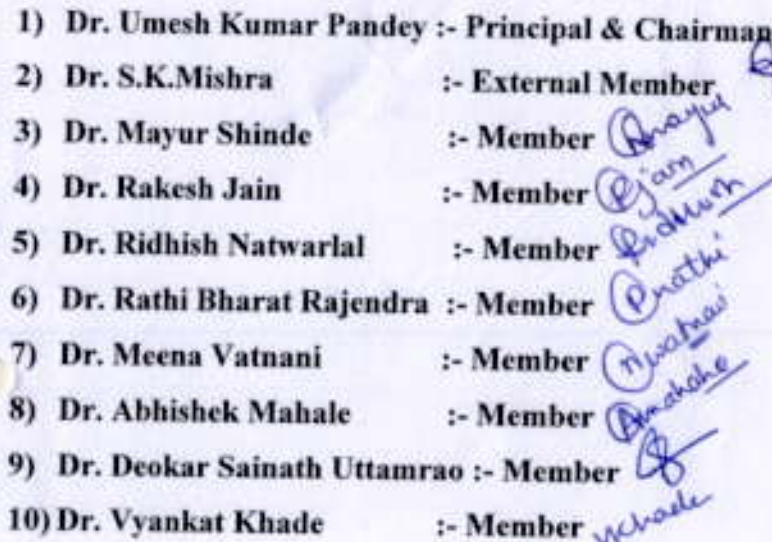 1) Dr. Umesh Kumar Pandey :- Principal & Chairman
2) Dr. S.K.Mishra :- External Member
3) Dr. Mayur Shinde :- Member Mayur
4) Dr. Rakesh Jain :- Member RJain
5) Dr. Ridhish Natwarlal :- Member Ridhish
6) Dr. Rathi Bharat Rajendra :- Member Rathi
7) Dr. Meena Vatnani :- Member
8) Dr. Abhishek Mahale :- Member
9) Dr. Deokar Sainath Uttamrao :- Member
10) Dr. Vyankat Khade :- Member